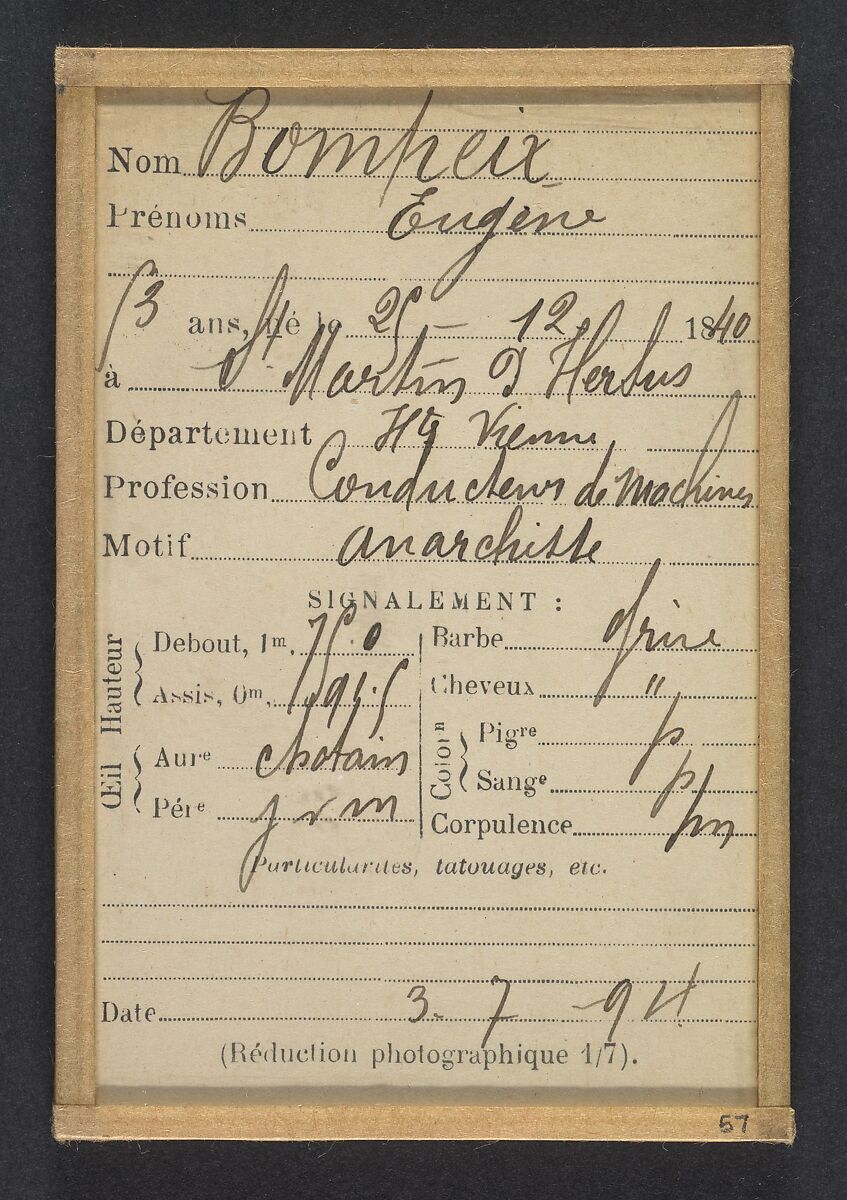 Nom Bompeix
Prénoms Eugène
53 ans, né le 25 - 12 1840
à St Martin
Département Hte Vienne
Profession Conducteur de Machines
Motif anarchiste
SIGNALEMENT :
Hauteur
Debout, 1m. 75.0
Assis, 0m,
Œil
Aure chatain
Pére j v m
Barbe grise
Cheveux "
Colorn
Pigre p
Sange p
Corpulence
Particularités, tatouages, etc.
Date 3 - 7 - 94
(Réduction photographique 1/7).
57